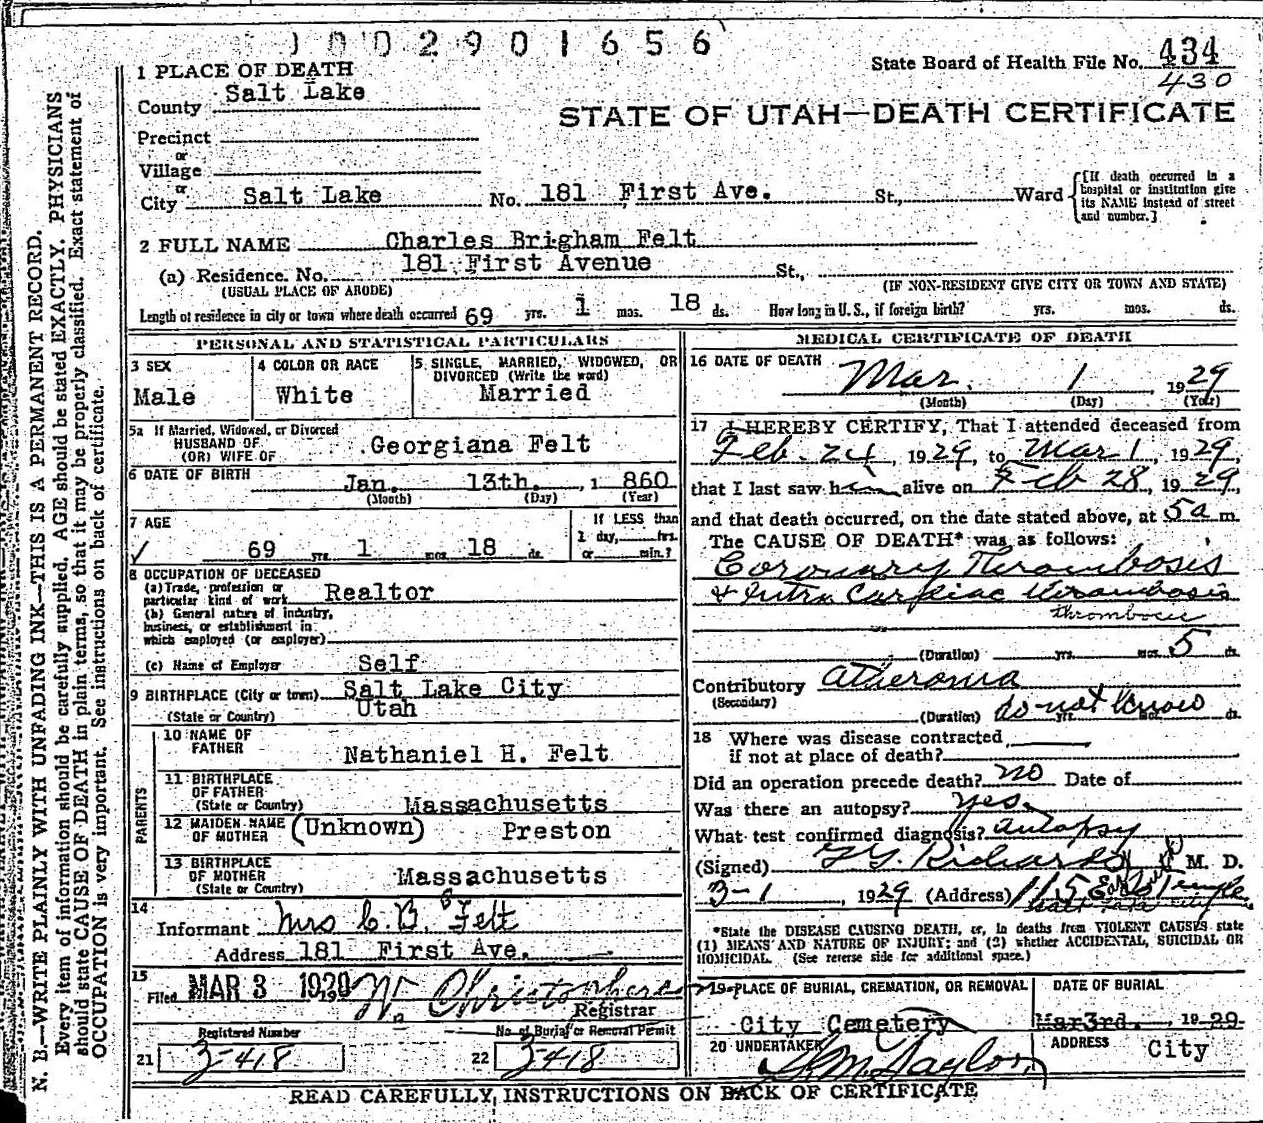 1002901656
State Board of Health File No. 434
430
1 PLACE OF DEATH
County Salt Lake
STATE OF UTAH—DEATH CERTIFICATE
Precinct
or
Village
or
City Salt Lake No. 181 First Ave. St., Ward
[If death occurred in a
hospital or institution give
its NAME instead of street
and number.]
2 FULL NAME Charles Brigham Felt
(a) Residence. No. 181 First Avenue St.,
(USUAL PLACE OF ABODE) (IF NON-RESIDENT GIVE CITY OR TOWN AND STATE)
Length of residence in city or town where death occurred 69 yrs. 1 mos. 18 ds. How long in U. S., if foreign birth? yrs. mos. ds.
PERSONAL AND STATISTICAL PARTICULARS
3 SEX
Male
4 COLOR OR RACE
White
5 SINGLE, MARRIED, WIDOWED, OR
DIVORCED (Write the word)
Married
5a If Married, Widowed, or Divorced
HUSBAND OF
(OR) WIFE OF Georgiana Felt
6 DATE OF BIRTH Jan. 13th. , 1 860
(Month) (Day) (Year)
7 AGE
69 yrs. 1 mos. 18 ds.
If LESS than
1 day, hrs.
or min.?
8 OCCUPATION OF DECEASED
(a) Trade, profession or
particular kind of work Realtor
(b) General nature of industry,
business, or establishment in
which employed (or employer)
(c) Name of Employer Self
9 BIRTHPLACE (City or town) Salt Lake City
(State or Country) Utah
PARENTS
10 NAME OF
FATHER Nathaniel H. Felt
11 BIRTHPLACE
OF FATHER
(State or Country) Massachusetts
12 MAIDEN NAME
OF MOTHER (Unknown) Preston
13 BIRTHPLACE
OF MOTHER
(State or Country) Massachusetts
14
Informant Mrs C. B. Felt
Address 181 First Ave.
15
Filed MAR 3 1929
Registrar
Registered Number
21 3-418
No. of Burial or Removal Permit
22 3-418
MEDICAL CERTIFICATE OF DEATH
16 DATE OF DEATH
Mar. 1 1929
(Month) (Day) (Year)
17 I HEREBY CERTIFY, That I attended deceased from
Feb. 24, 1929, to Mar 1, 1929,
that I last saw him alive on Feb 28, 1929,
and that death occurred, on the date stated above, at 5 a m.
The CAUSE OF DEATH* was as follows:
Coronary Thrombosis
& Intra Cardiac thrombosis
(Duration) yrs. mos. 5 ds.
Contributory Atheroma
(Secondary)
(Duration) do not know yrs. mos. ds.
18 Where was disease contracted
if not at place of death?
Did an operation precede death? no Date of
Was there an autopsy? Yes
What test confirmed diagnosis? autopsy
(Signed) G. G. Richards M. D.
3-1, 1929 (Address) 115 E So Temple
Salt Lake City
*State the DISEASE CAUSING DEATH, or, in deaths from VIOLENT CAUSES state
(1) MEANS AND NATURE OF INJURY; and (2) whether ACCIDENTAL, SUICIDAL OR
HOMICIDAL. (See reverse side for additional space.)
19 PLACE OF BURIAL, CREMATION, OR REMOVAL
City Cemetery
DATE OF BURIAL
Mar 3rd. , 1929
20 UNDERTAKER
S. M. Taylor
ADDRESS
City
READ CAREFULLY INSTRUCTIONS ON BACK OF CERTIFICATE
N. B.—WRITE PLAINLY WITH UNFADING INK—THIS IS A PERMANENT RECORD.
Every item of information should be carefully supplied. AGE should be stated EXACTLY. PHYSICIANS
should state CAUSE OF DEATH in plain terms, so that it may be properly classified. Exact statement of
OCCUPATION is very important. See instructions on back of certificate.